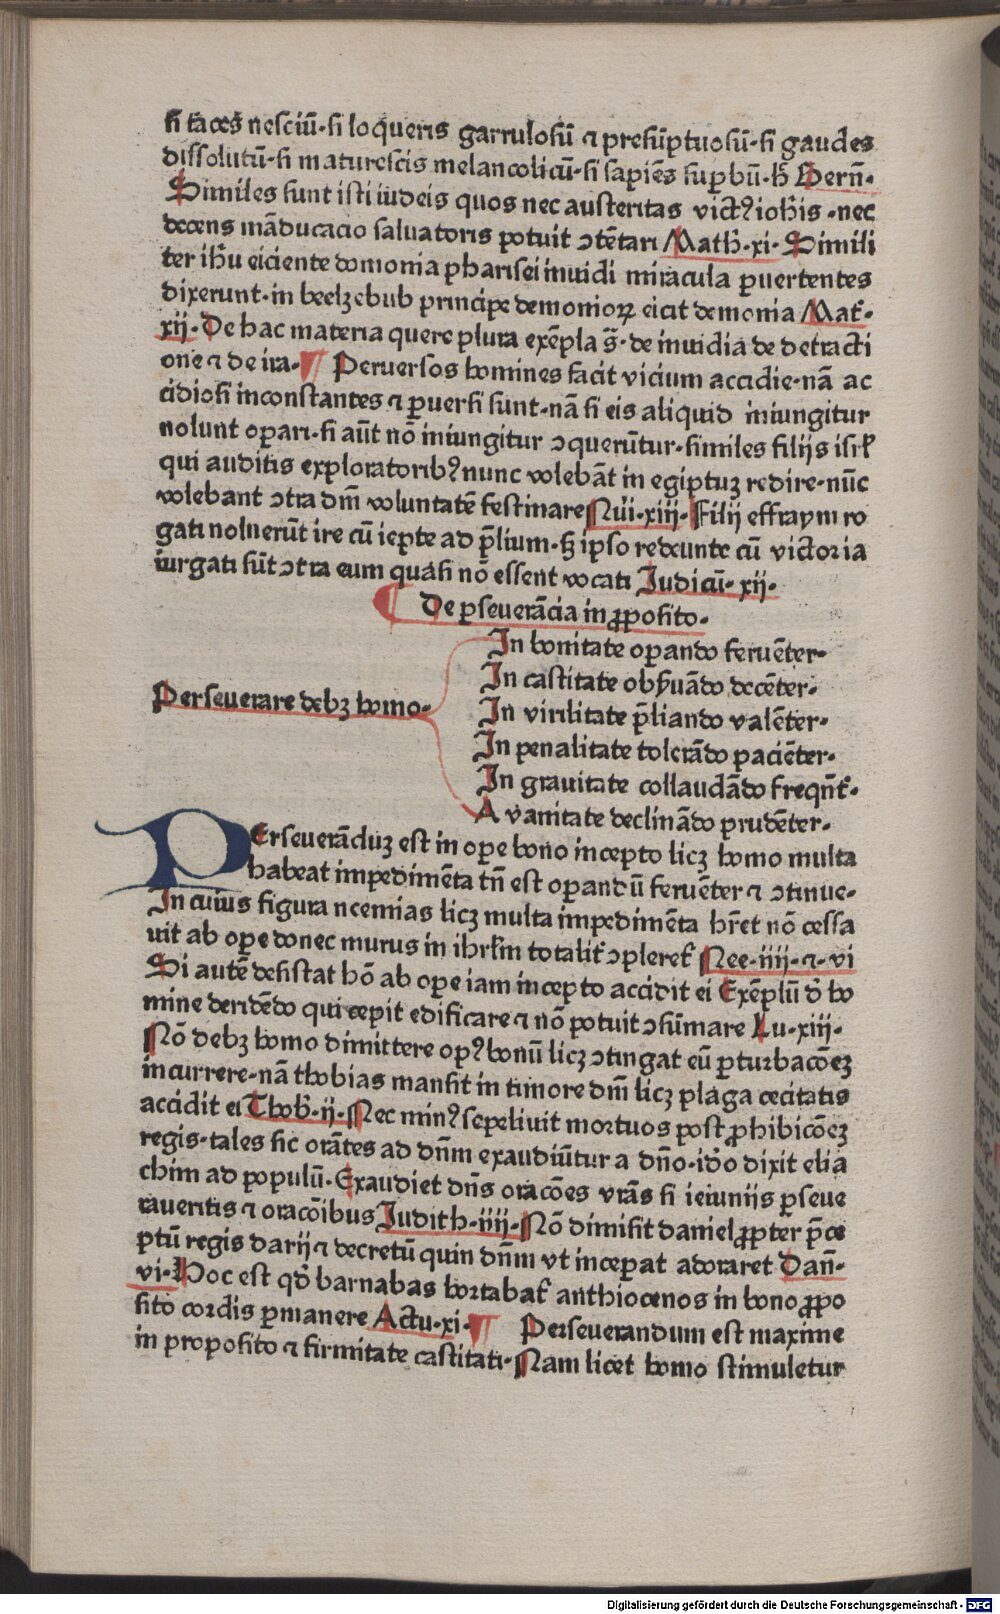 si taces nesciū·si loqueris garrulosū ⁊ presūptuosū·si gaudes
dissolutū·si maturescis melancolicū·si sapiēs suꝑbū·h̄ Bern̄·
Similes sunt isti iudeis quos nec austeritas victꝰ ioh̄is·nec
decens māducacio saluatoris potuit ↄtētari Math̄·xi·Simili
ter ih̄u eiciente domonia pharisei inuidi miracula ꝑuertentes
dixerunt·in beelzebub principe demonioꝝ eicit demonia Mat̄·
xij·De hac materia quere plura exēpla s̄·de inuidia de detracti
one ⁊ de ira·¶ Peruersos homines facit vicium accidie·nā ac
cidiosi inconstantes ⁊ ꝑuersi sunt·nā si eis aliquid iniungitur
nolunt oꝑari·si aūt nō iniungitur ↄquerūtur·similes filijs isrl̄
qui auditis exploratoribꝰ nunc volebāt in egiptuꝫ redire·nūc
volebant ↄtra dm̄ voluntatē festinare Nūi·xiij·Filij effraym ro
gati noluerūt ire cū iepte ad p̄lium·ꝫ ipso redeunte cū victoria
iurgati sūt ↄtra eum quasi nō essent vocati Iudicū·xij·
¶ De ꝑseuerācia in ꝓposito·
In bonitate oꝑando feruēter·
In castitate obẜuādo decēter·
Perseuerare debꝫ homo·
In virilitate p̄liando valēter·
In penalitate tolerādo paciēter·
In grauitate collaudādo freqn̄t̄·
A vanitate declinādo prudēter·
PErseuerāduꝫ est in oꝑe bono incepto licꝫ homo multa
habeat impedimēta tn̄ est oꝑandū feruēter ⁊ ↄtinue·
In cuius figura neemias licꝫ multa impedimēta hr̄et nō cessa
uit ab oꝑe donec murus in ihrl̄m totalit̄ ↄpleret̄ Nee·iiij·⁊·vi
Si autē desistat hō ab oꝑe iam incepto accidit ei Exēplū d̄ ho
mine deridēdo qui cepit edificare ⁊ nō potuit ↄsūmare Lu·xiij·
Nō debꝫ homo dimittere opꝰ bonū licꝫ ↄtingat eū ꝑturbacōeꝫ
incurrere·nā thobias mansit in timore dn̄i licꝫ plaga cecitatis
accidit ei Thob̄·ij·Nec minꝰ sepeliuit mortuos post ꝓhibicōeꝫ
regis·tales sic orātes ad dn̄m exaudiūtur a dn̄o·iđo dixit elia
chim ad populū·Exaudiet dn̄s oracōes vr̄as si ieiuniis ꝑseue
raueritis ⁊ oracōibus Iudith·iiij·Nō dimisit daniel ꝓpter p̄ce
ptū regis darij ⁊ decretū quin dn̄m vt inceꝑat adoraret Dan̄·
vi·Hoc est qđ barnabas hortabat̄ anthiocenos in bono ꝓpo
sito cordis ꝑmanere Actu·xi·¶ Perseuerandum est maxime
in proposito ⁊ firmitate castitati·Nam licet homo stimuletur
Digitalisierung gefördert durch die Deutsche Forschungsgemeinschaft · DFG